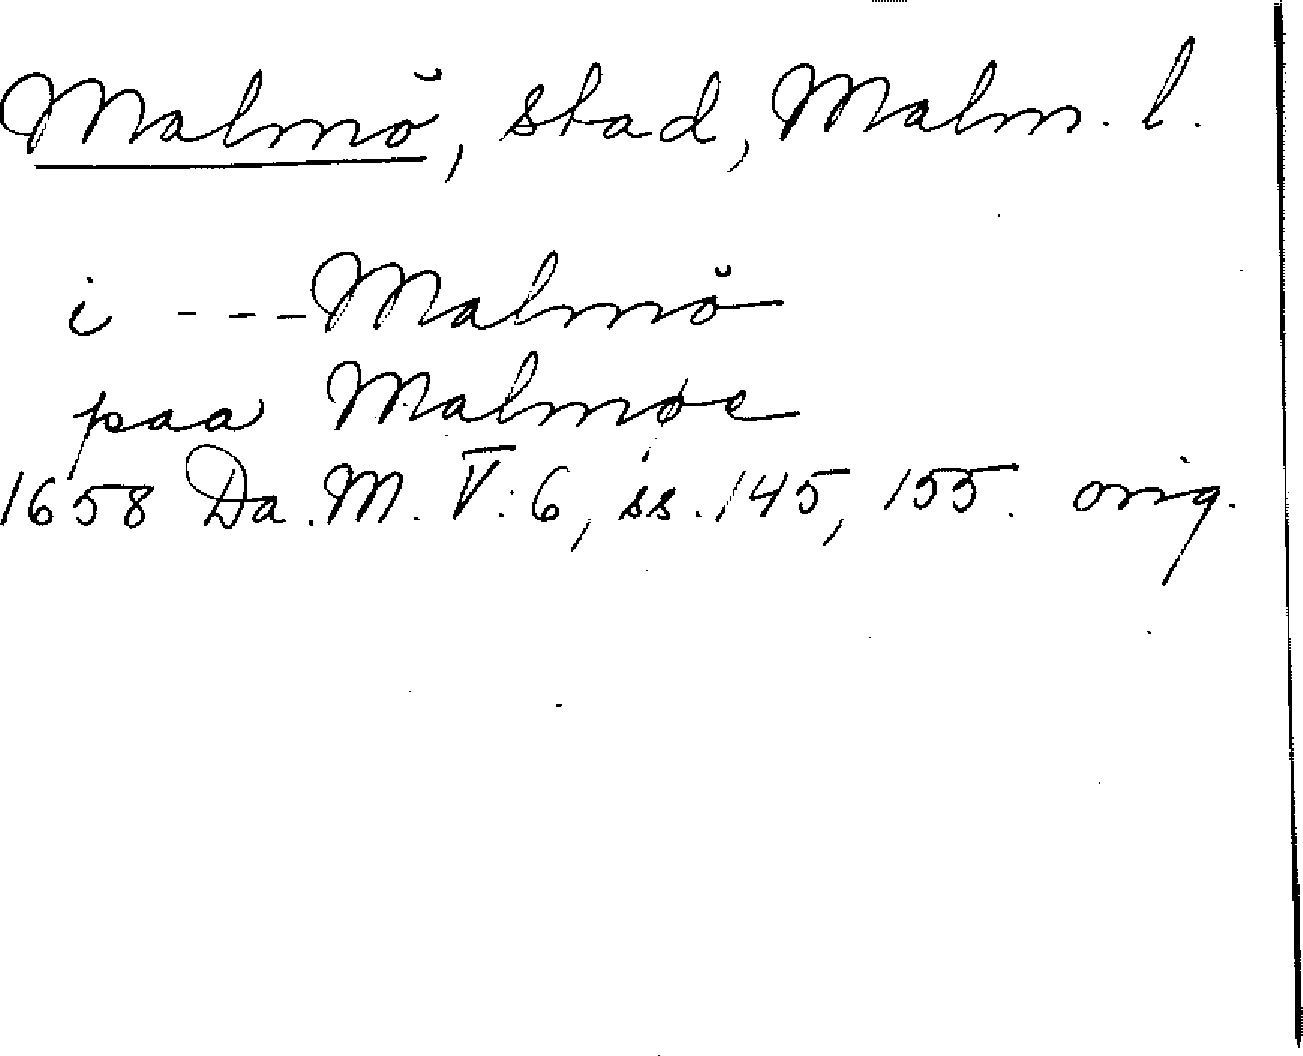 Malmö, stad, Malm. l.
i --- Malmö
paa Malmøe
1658 Da. M. V: 6, ss. 145, 155. orig.